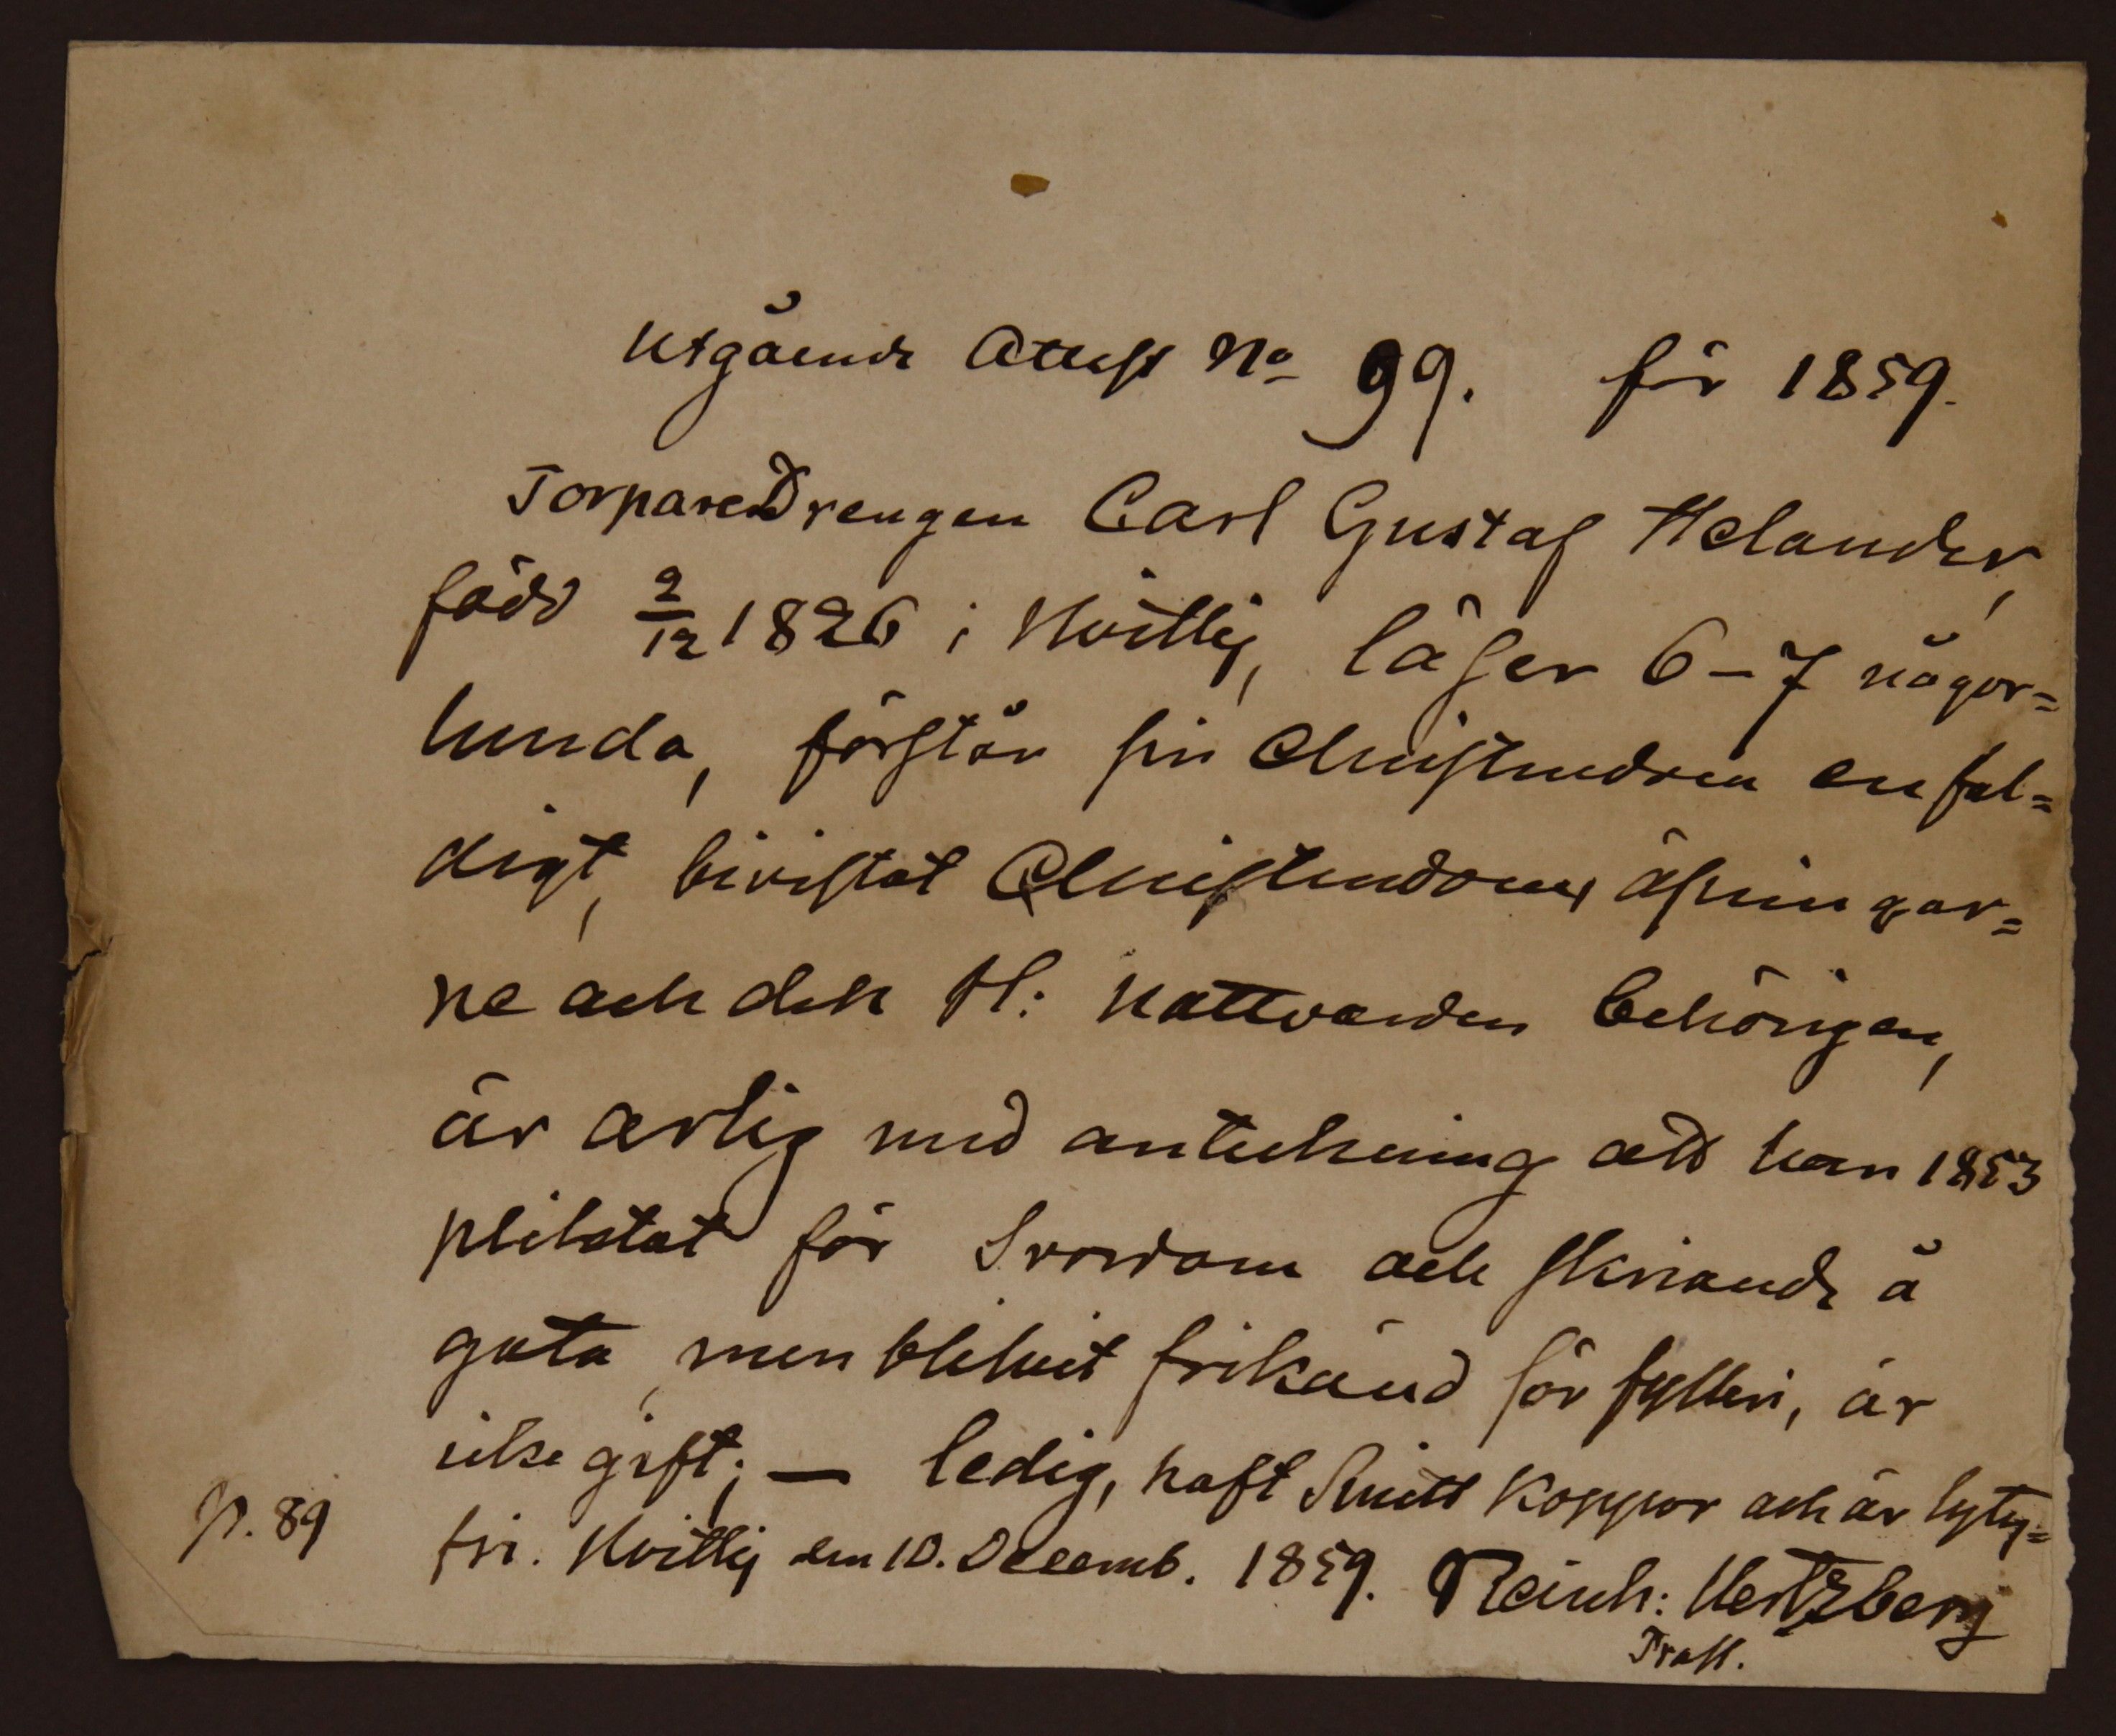 Utgående Attest No 99. för 1859.
TorpareDrengen Carl Gustaf Helander,
född 2/12 1826 i Hvittis, läser 6-7 någor=
lunda, förstår sin Christendom enfal=
digt, bivistat Christendoms öfningar=
ne och den H: Nattvarden behörigen,
är ärlig med antekning att han 1853
pliktat för Svordom och skriande å
gata, men blifvit frikänd för fylleri, är
icke gift; — ledig, haft Smitt Koppor och är lytes=
fri. Hvittis den 10. Decemb. 1859. Reinh: Hertzberg
Prost.
p. 89